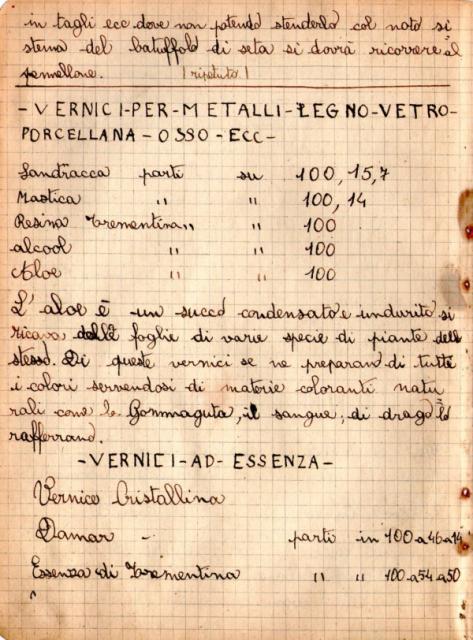 in tagli ecc dove non potendo stenderlo col noto si
stema del batuffolo di seta si dovrà ricorrere al
pennellone. (ripetuto)
-VERNICI-PER-METALLI-LEGNO-VETRO-
PORCELLANA-OSSO-ECC-
Sandracca parti su 100, 15,7
Mastica " " 100, 14
Resina Trementina " " 100
alcool " " 100
Aloe " " 100
L'aloe è un succo condensato e indurito si
ricava dalle foglie di varie specie di piante dello
stesso. Di queste vernici se ne preparan di tutti
i colori servendosi di materie coloranti natu
rali come la Gommaguta, il sangue di drago lo
zafferrano.
-VERNICI-AD-ESSENZA-
Vernice Cristallina
Damar - parti in 100 a 46 a 14
Essenza di Trementina " " 100 a 54 a 50